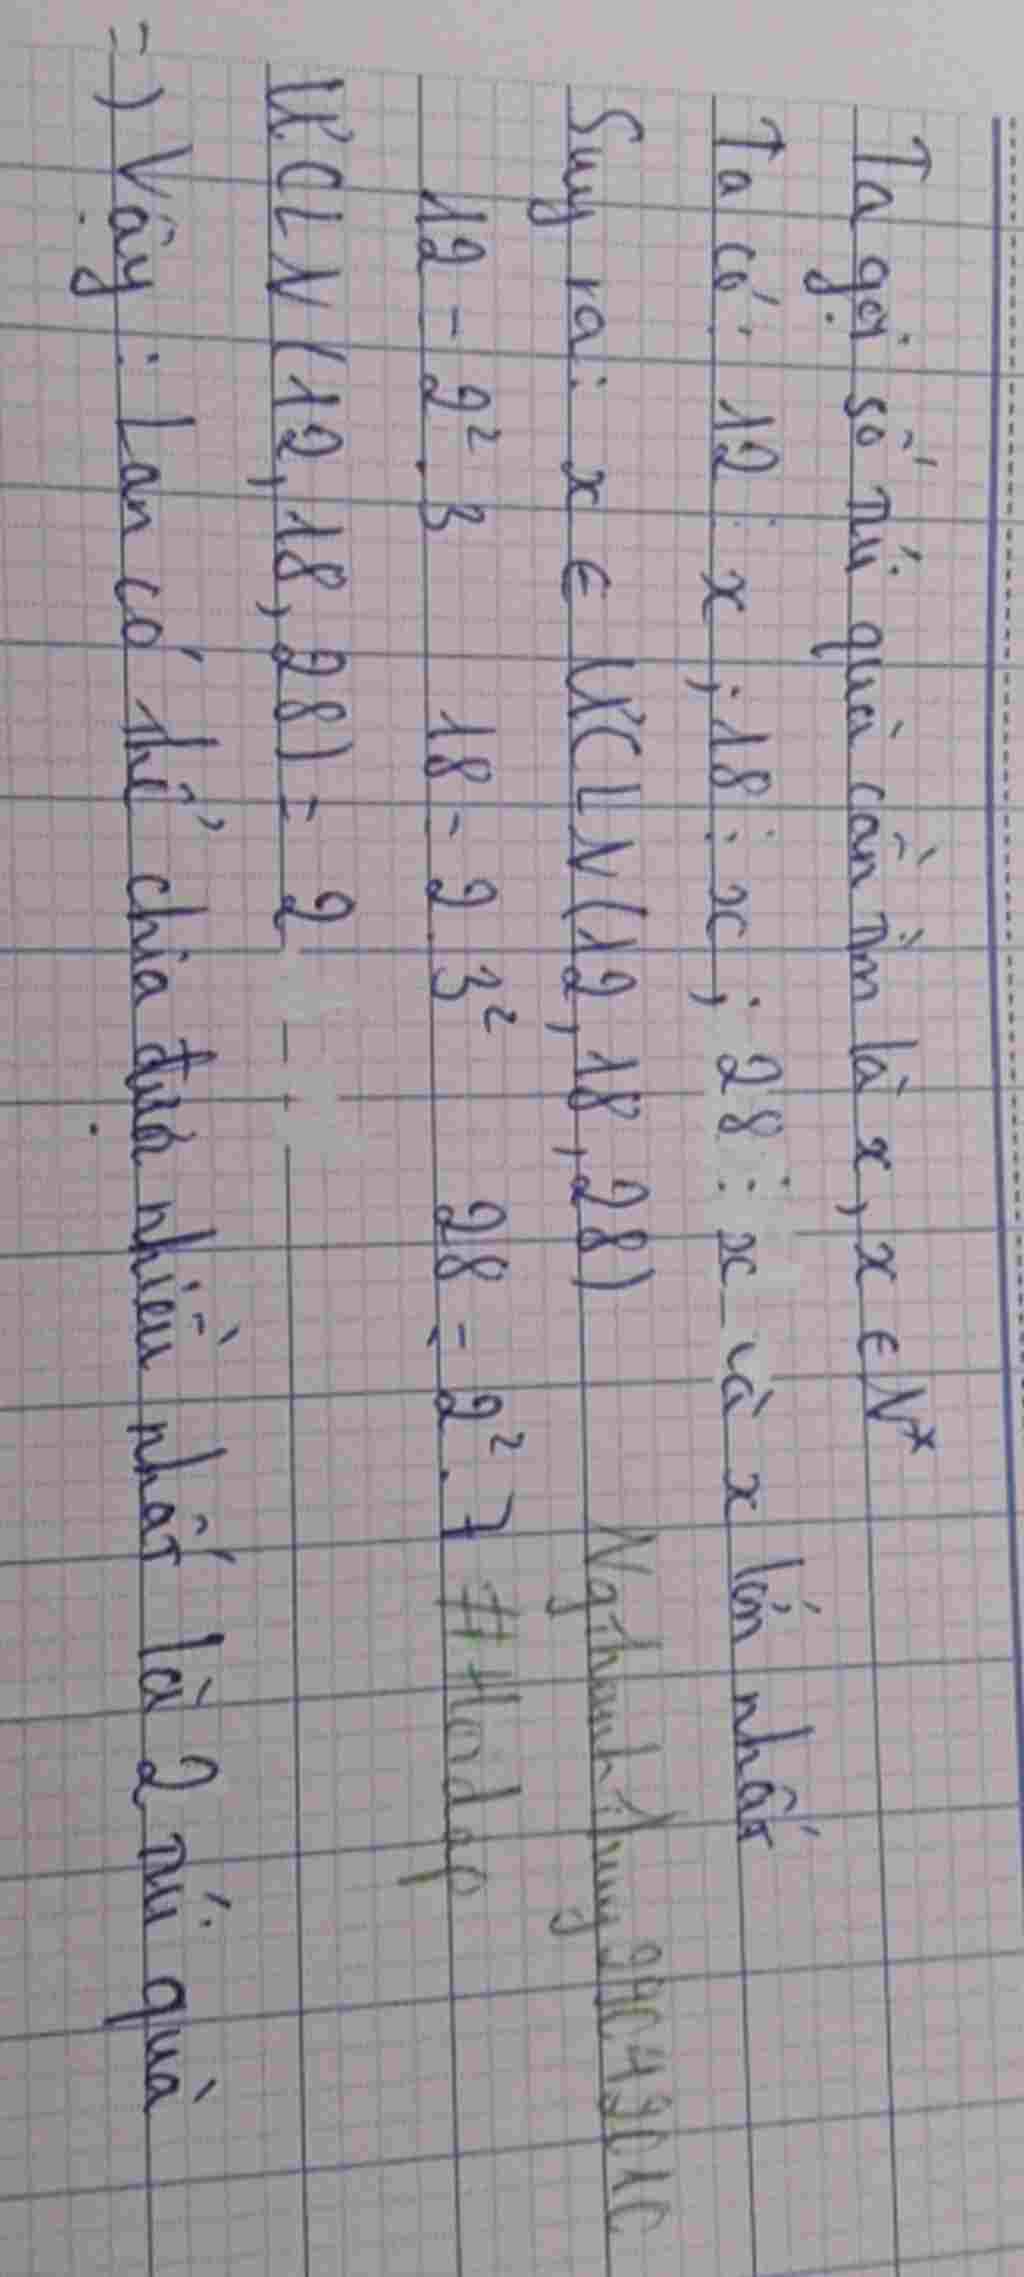 Ta gọi số túi quà cần tìm là x, x ∈ N*
Ta có: 12 ⋮ x ; 18 ⋮ x ; 28 ⋮ x và x lớn nhất
Suy ra: x ∈ ƯCLN (12, 18, 28)
12 = 2². 3 18 = 2. 3² 28 = 2². 7 #Hoidap
ƯCLN (12, 18, 28) = 2
=) Vậy: Lan có thể chia được nhiều nhất là 2 túi quà